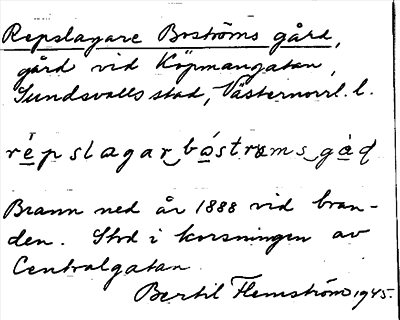 Repslagare Boströms gård,
gård vid Köpmangatan,
Sundsvalls stad, Västernorrl. l.
repslagar bostrøms gåd
Brann ned år 1888 vid bran-
den. Stod i korsningen av
Centralgatan.
Bertil Flemström 1945.